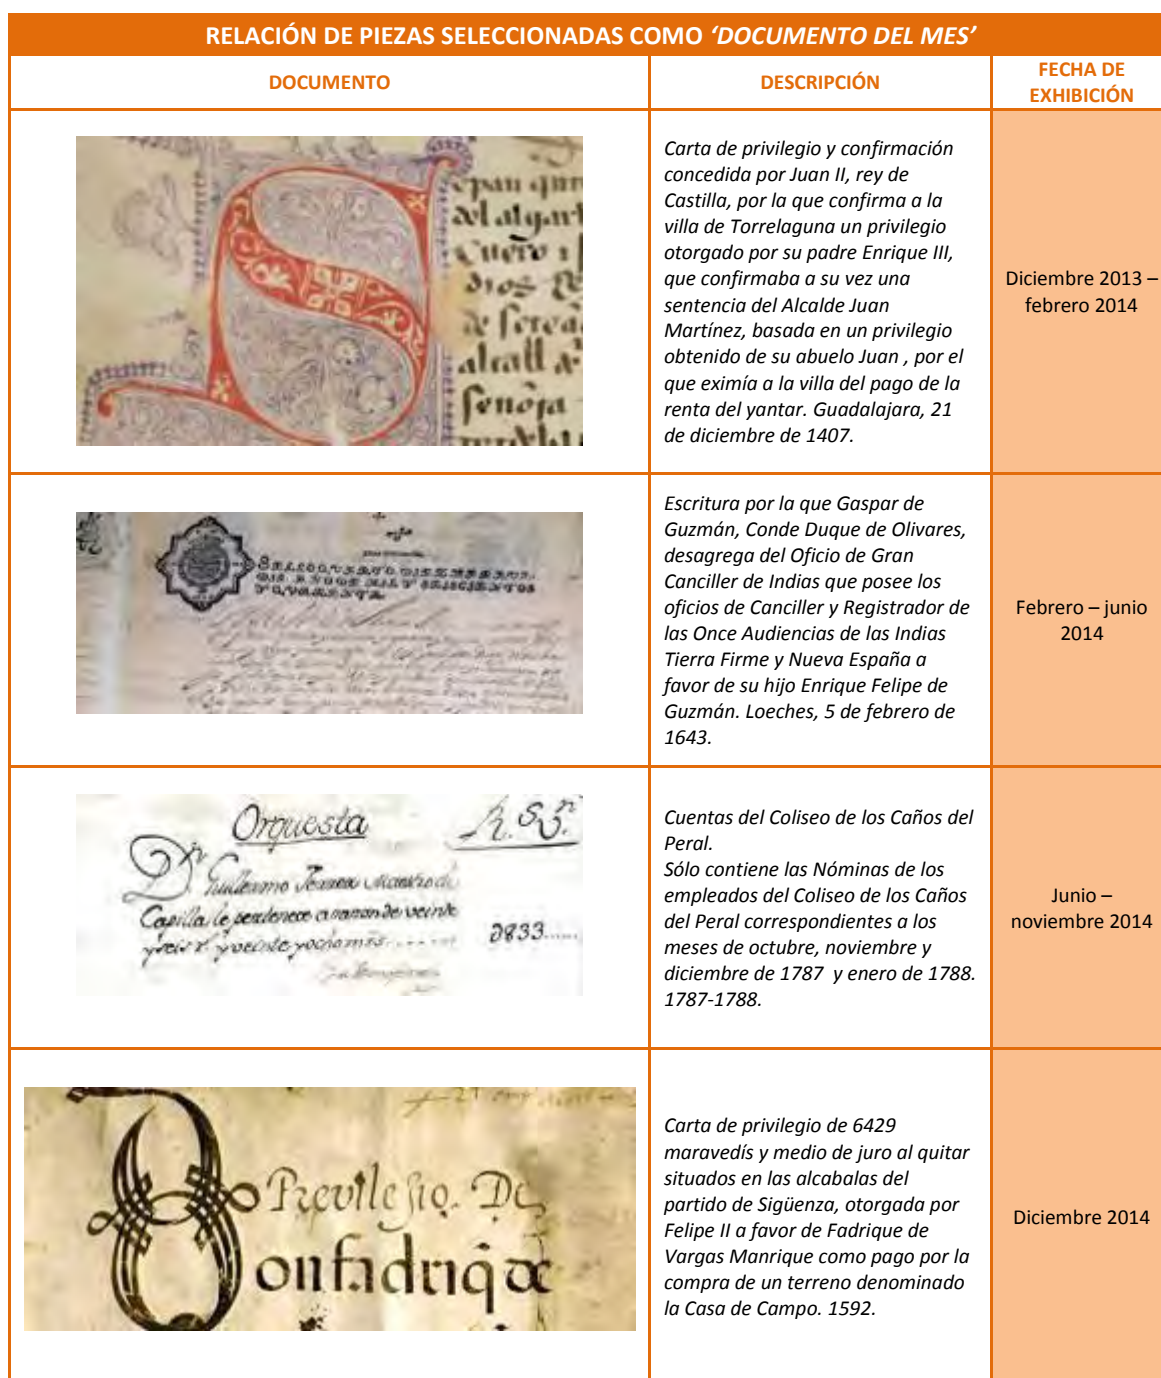 RELACIÓN DE PIEZAS SELECCIONADAS COMO ‘DOCUMENTO DEL MES’
DOCUMENTO
DESCRIPCIÓN
FECHA DE
EXHIBICIÓN
Carta de privilegio y confirmación
concedida por Juan II, rey de
Castilla, por la que confirma a la
villa de Torrelaguna un privilegio
otorgado por su padre Enrique III,
que confirmaba a su vez una
sentencia del Alcalde Juan
Martínez, basada en un privilegio
obtenido de su abuelo Juan , por el
que eximía a la villa del pago de la
renta del yantar. Guadalajara, 21
de diciembre de 1407.
Diciembre 2013 –
febrero 2014
Escritura por la que Gaspar de
Guzmán, Conde Duque de Olivares,
desagrega del Oficio de Gran
Canciller de Indias que posee los
oficios de Canciller y Registrador de
las Once Audiencias de las Indias
Tierra Firme y Nueva España a
favor de su hijo Enrique Felipe de
Guzmán. Loeches, 5 de febrero de
1643.
Febrero – junio
2014
Orquesta
Capilla le pertenece a razon de veinte
Cuentas del Coliseo de los Caños del
Peral.
Sólo contiene las Nóminas de los
empleados del Coliseo de los Caños
del Peral correspondientes a los
meses de octubre, noviembre y
diciembre de 1787 y enero de 1788.
1787-1788.
Junio –
noviembre 2014
Previlegio. De
onfadriq̃ de
Carta de privilegio de 6429
maravedís y medio de juro al quitar
situados en las alcabalas del
partido de Sigüenza, otorgada por
Felipe II a favor de Fadrique de
Vargas Manrique como pago por la
compra de un terreno denominado
la Casa de Campo. 1592.
Diciembre 2014